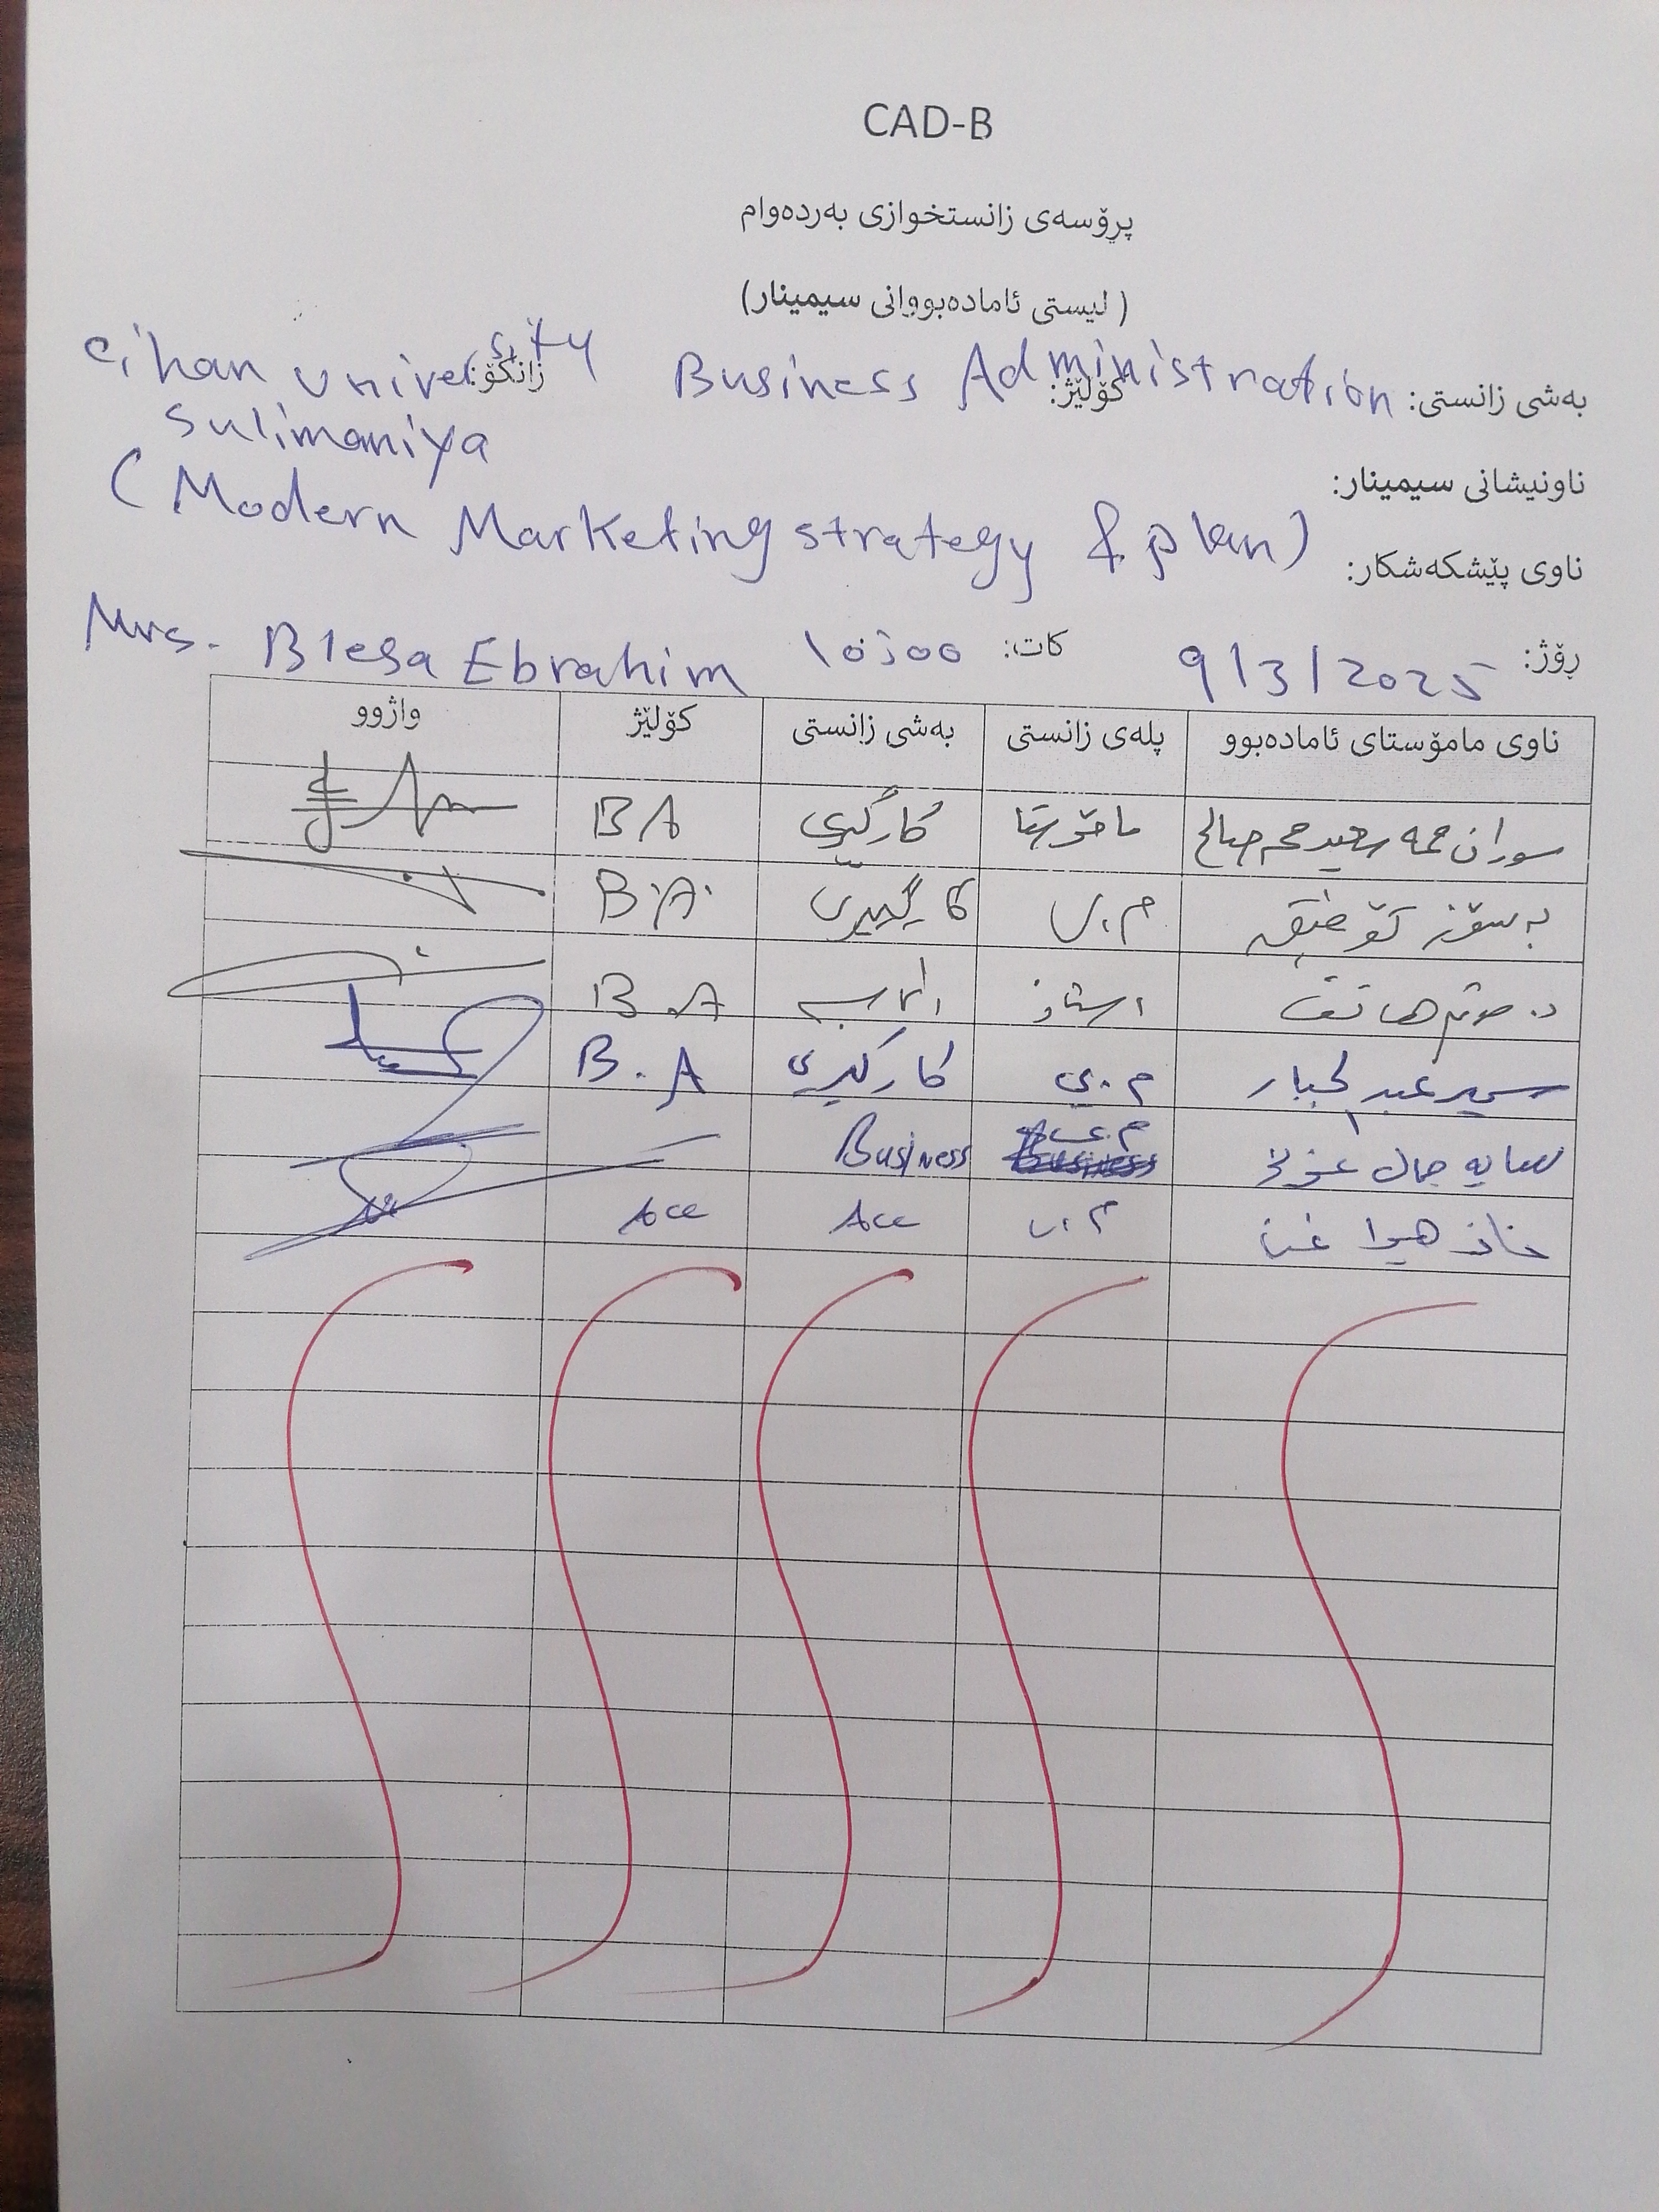 CAD-B
پرۆسەی زانستخوازی بەردەوام
( لیستی ئامادەبووانی سیمینار)
بەشی زانستی: Business Administration کۆلێژ: زانکۆ: Cihan University
Sulimaniya
ناونیشانی سیمینار:
(Modern Marketing strategy & plan)
ناوی پێشکەشکار:
Mrs. Blesa Ebrahim
ڕۆژ: 9/3/2025 کات: 10:00
ناوی مامۆستای ئامادەبوو پلەی زانستی بەشی زانستی کۆلێژ واژوو
سوران حمه سعید حمه صالح مامۆستا کارگێری BA
بەسۆز تۆفیق م.ی کارگێری B.A.
د. هاتف استاذ B.A
سمیر عبد الجبار م.ی کارگیری B.A
جمال م.ی Business
هیوا م.ی Acc Acc